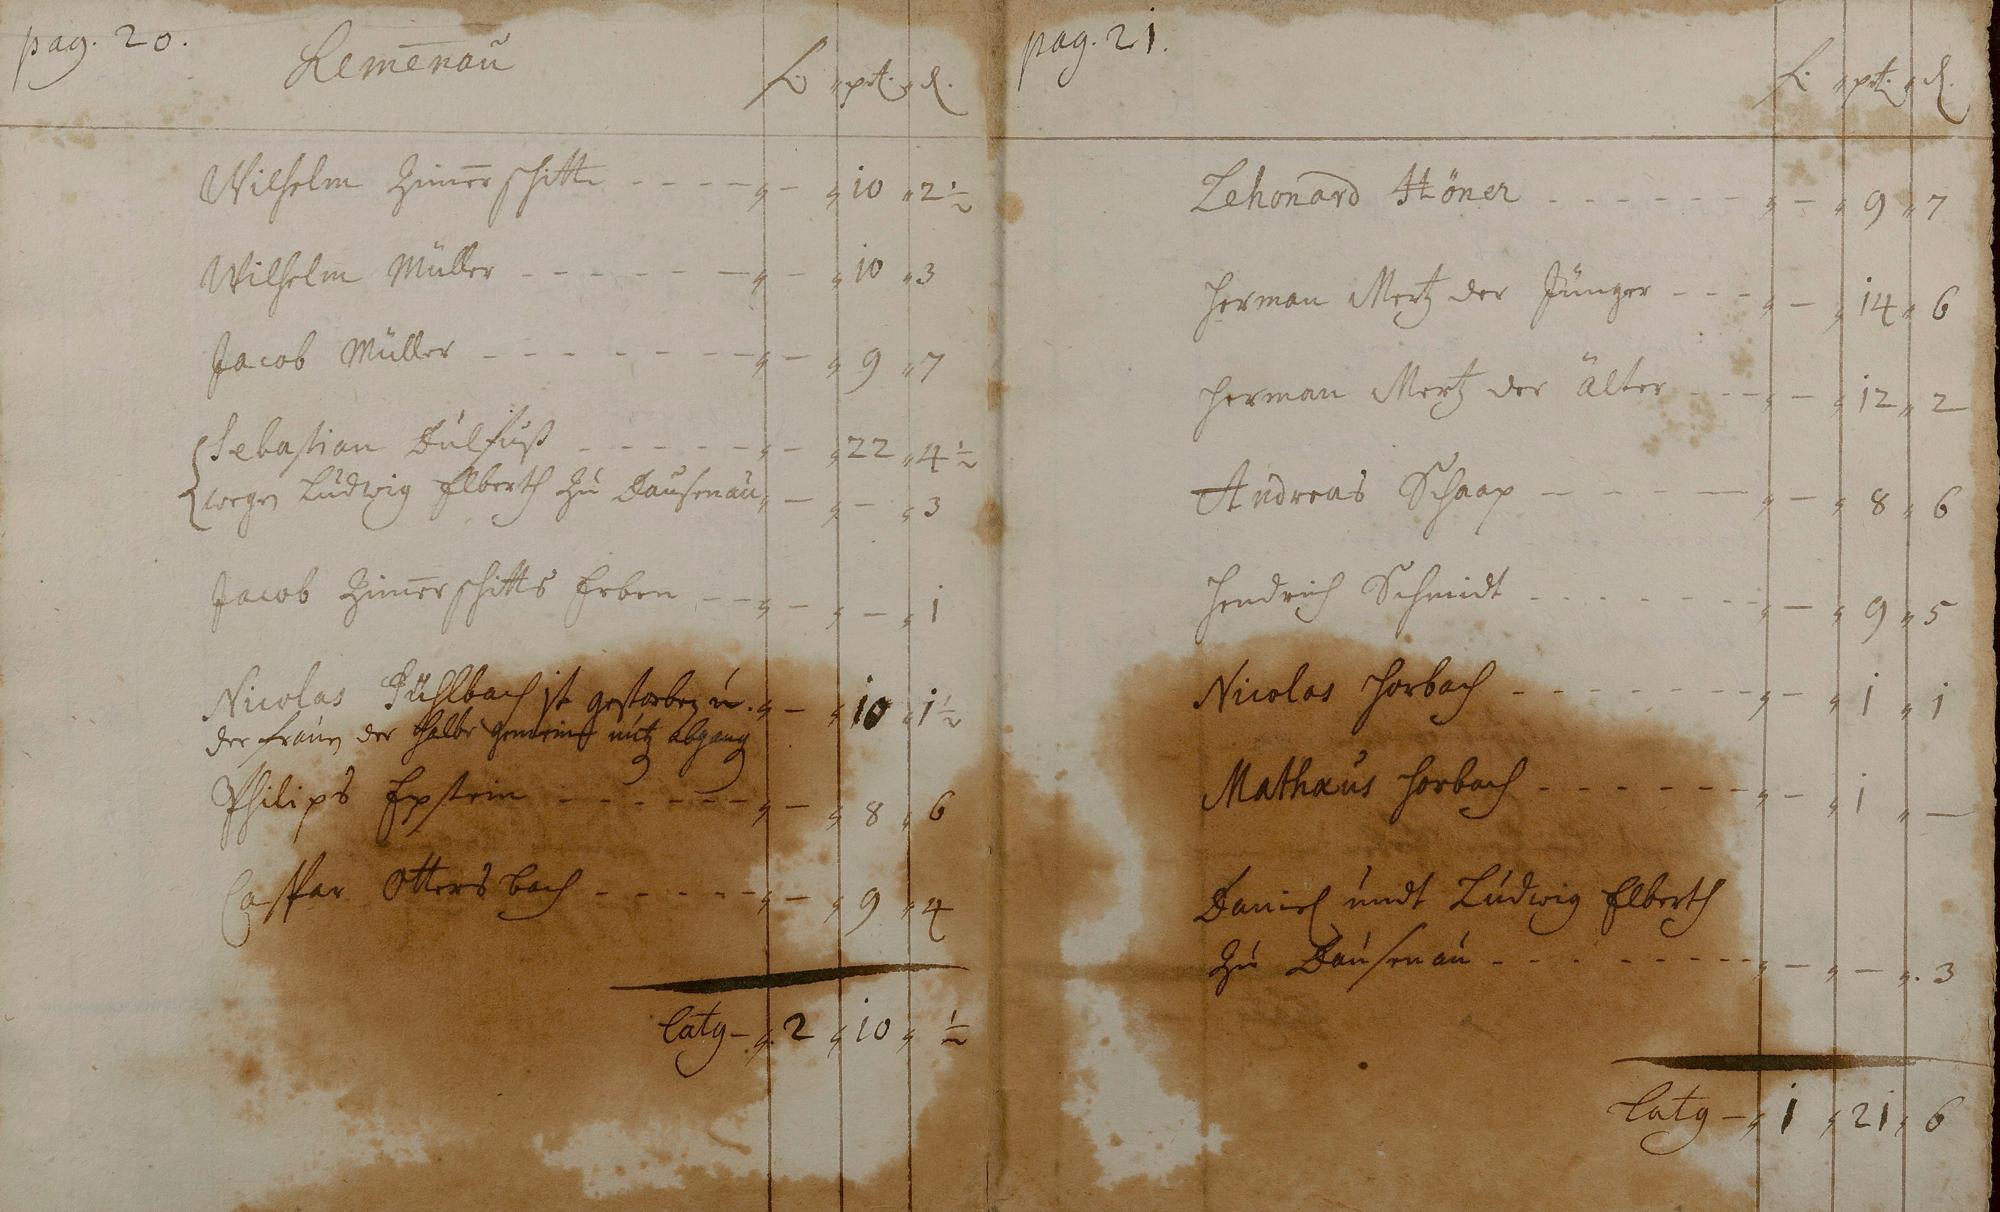 pag. 20.
Kemenau
fl. " pet. " d.
Wilhelm Zimerschitt - - - - " - " 10 " 2 ½
Wilhelm Müller - - - - - - - " - " 10 " 3
Jacob Müller - - - - - - - " - " 9 " 7
Sebastian Dülfuß - - - - - " - " 22 " 4 ½
wegen Ludwig Elberth zu Dausenau " - " - " 3
Jacob Zimerschitts Erben - - " - " - " 1
Nicolas Kühlbach ist gestorben u. " - " 10 " 1 ½
der frauen der halbe gemeine nutz abgang
Philips Epstein - - - - - - " - " 8 " 6
Caspar Ottersbach - - - - - " - " 9 " 4
Latg - " 2 " 10 " ½
pag. 21.
fl. " pet. " d.
Lehonard Höner - - - - - - " - " 9 " 7
Herman Mertz der Jünger - - - " - " 14 " 6
Herman Mertz der älter - - - " - " 12 " 2
Andreas Schaap - - - - - " - " 8 " 6
Hendrich Schmidt - - - - - - " - " 9 " 5
Nicolas Horbach - - - - - - " - " 1 " 1
Mathæus Horbach - - - - - - " - " 1 " -
Daniel undt Ludwig Elberth
zu Dausenau - - - - - - - " - " - " 3
Latg - " 1 " 21 " 6